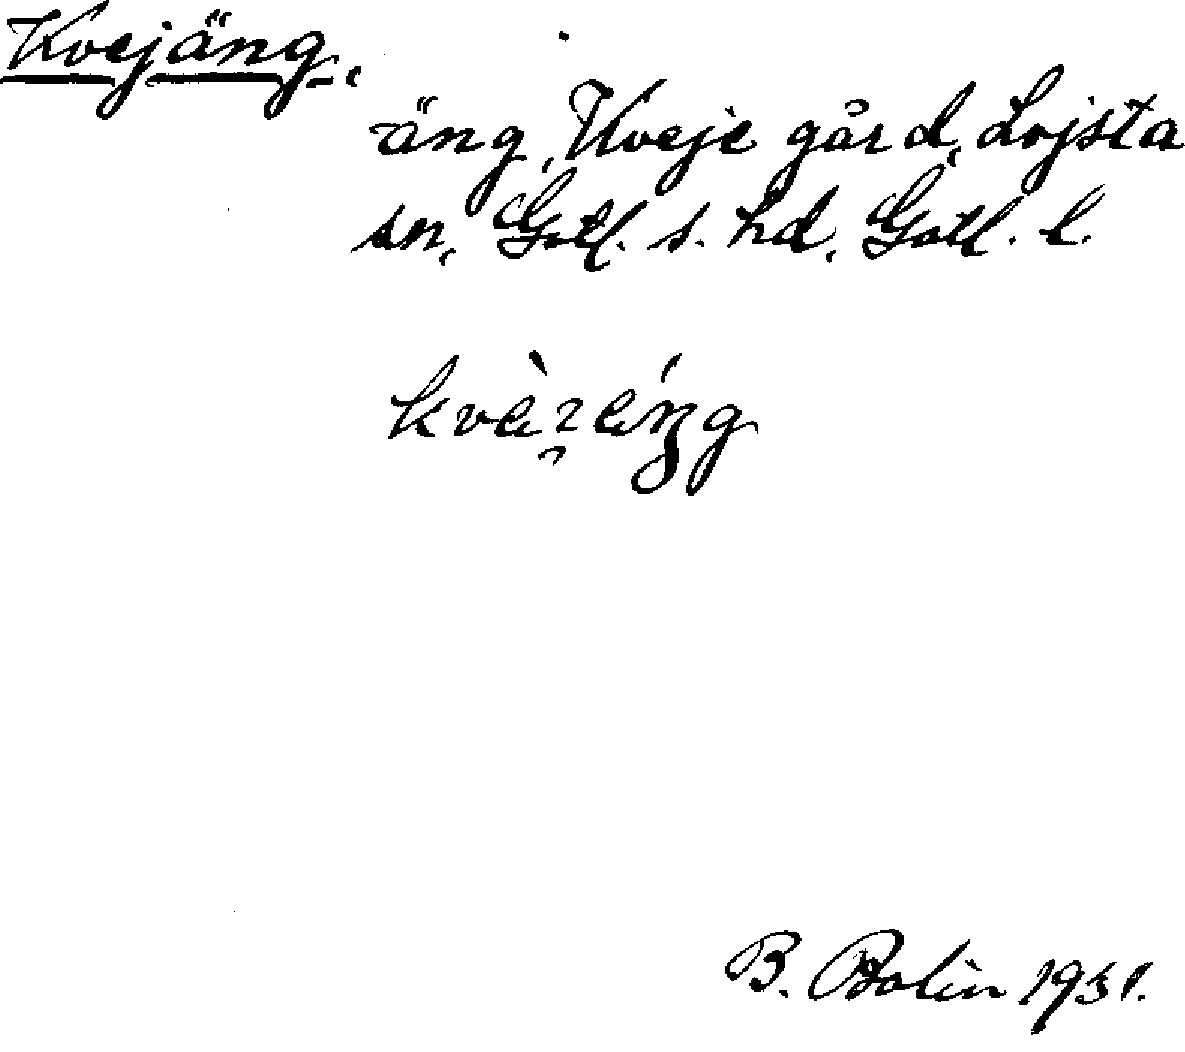 Kvejäng,
äng, Kveje gård, Lojsta
sn, Gotl. s. hd, Gotl. l.
B. Bolin 1931.